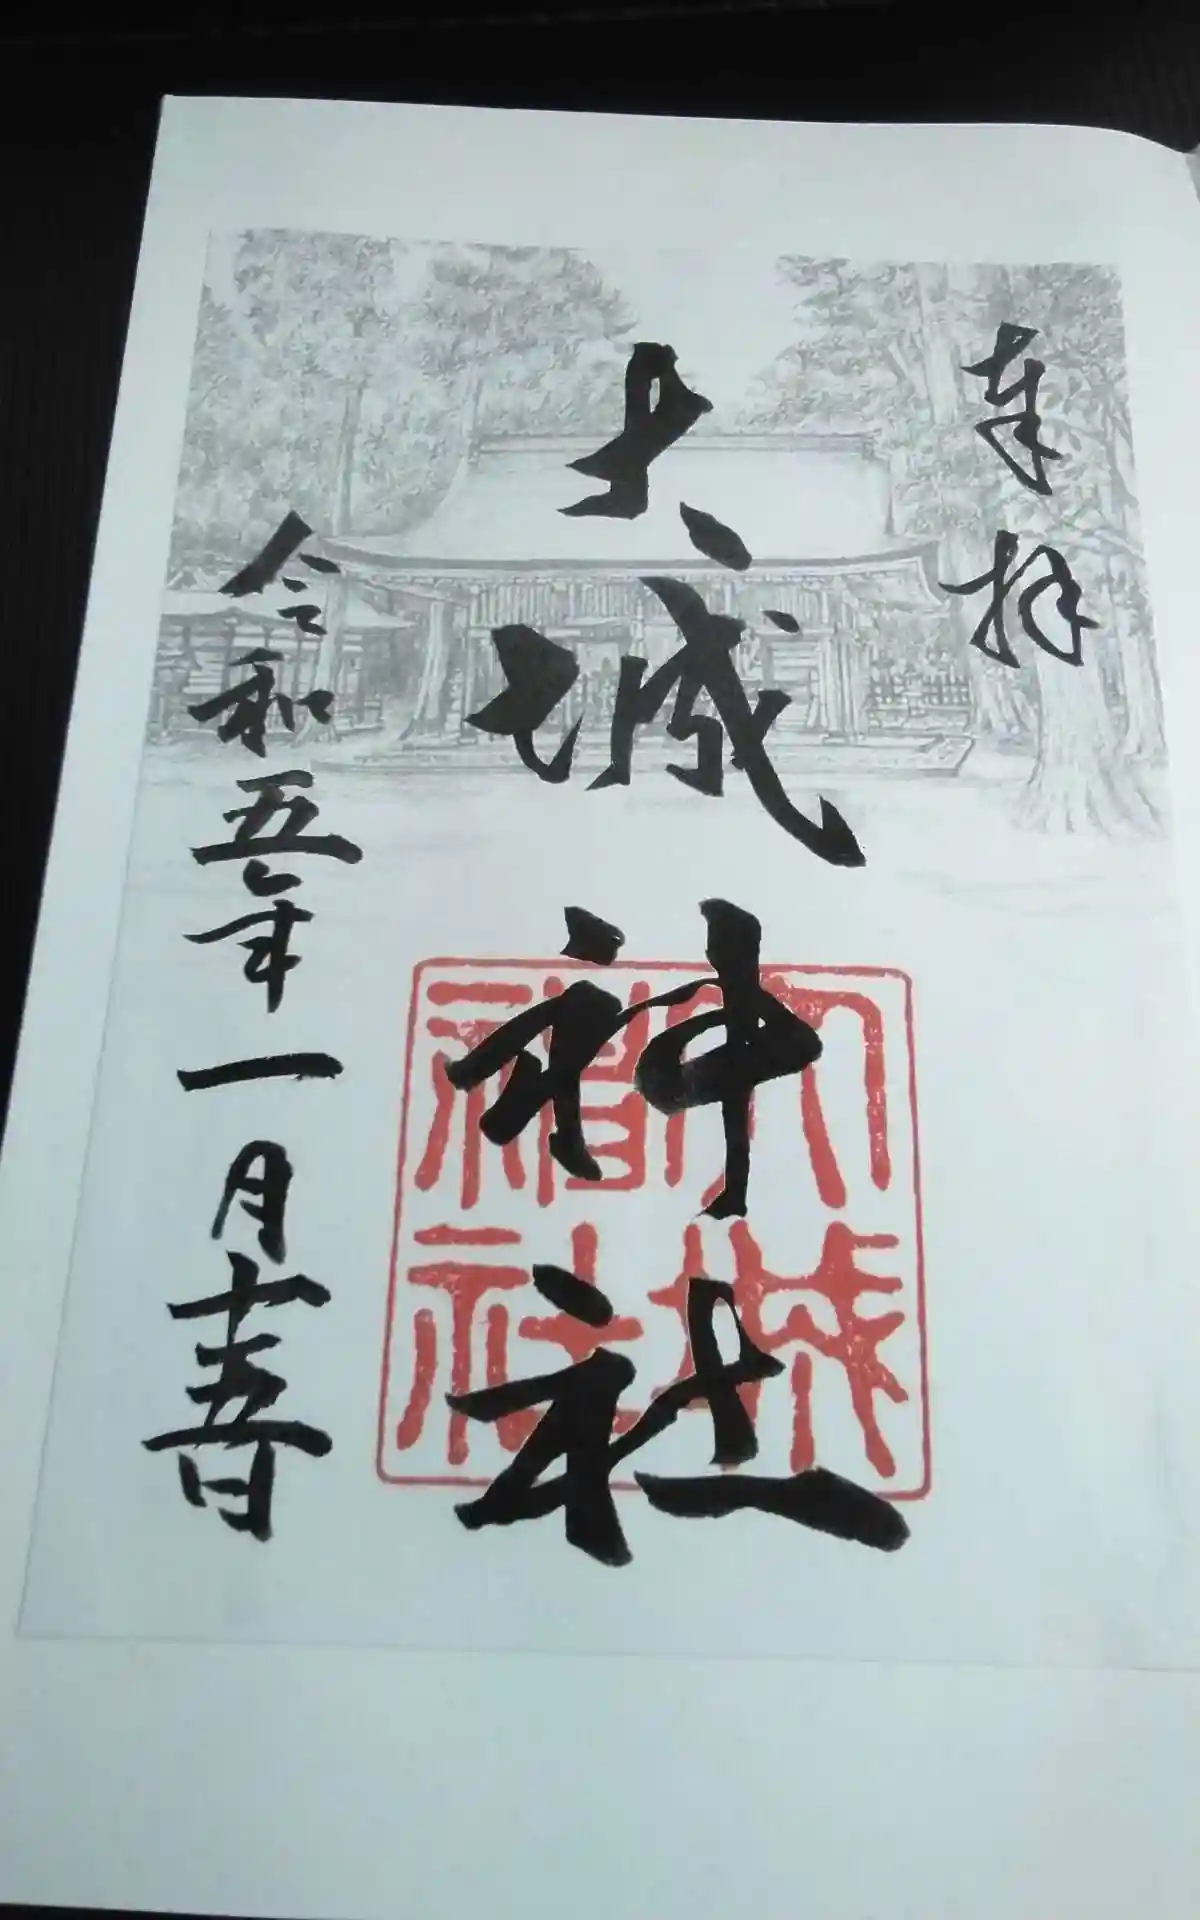 奉拝
大城神社
大城
神社
令和五年一月十五日